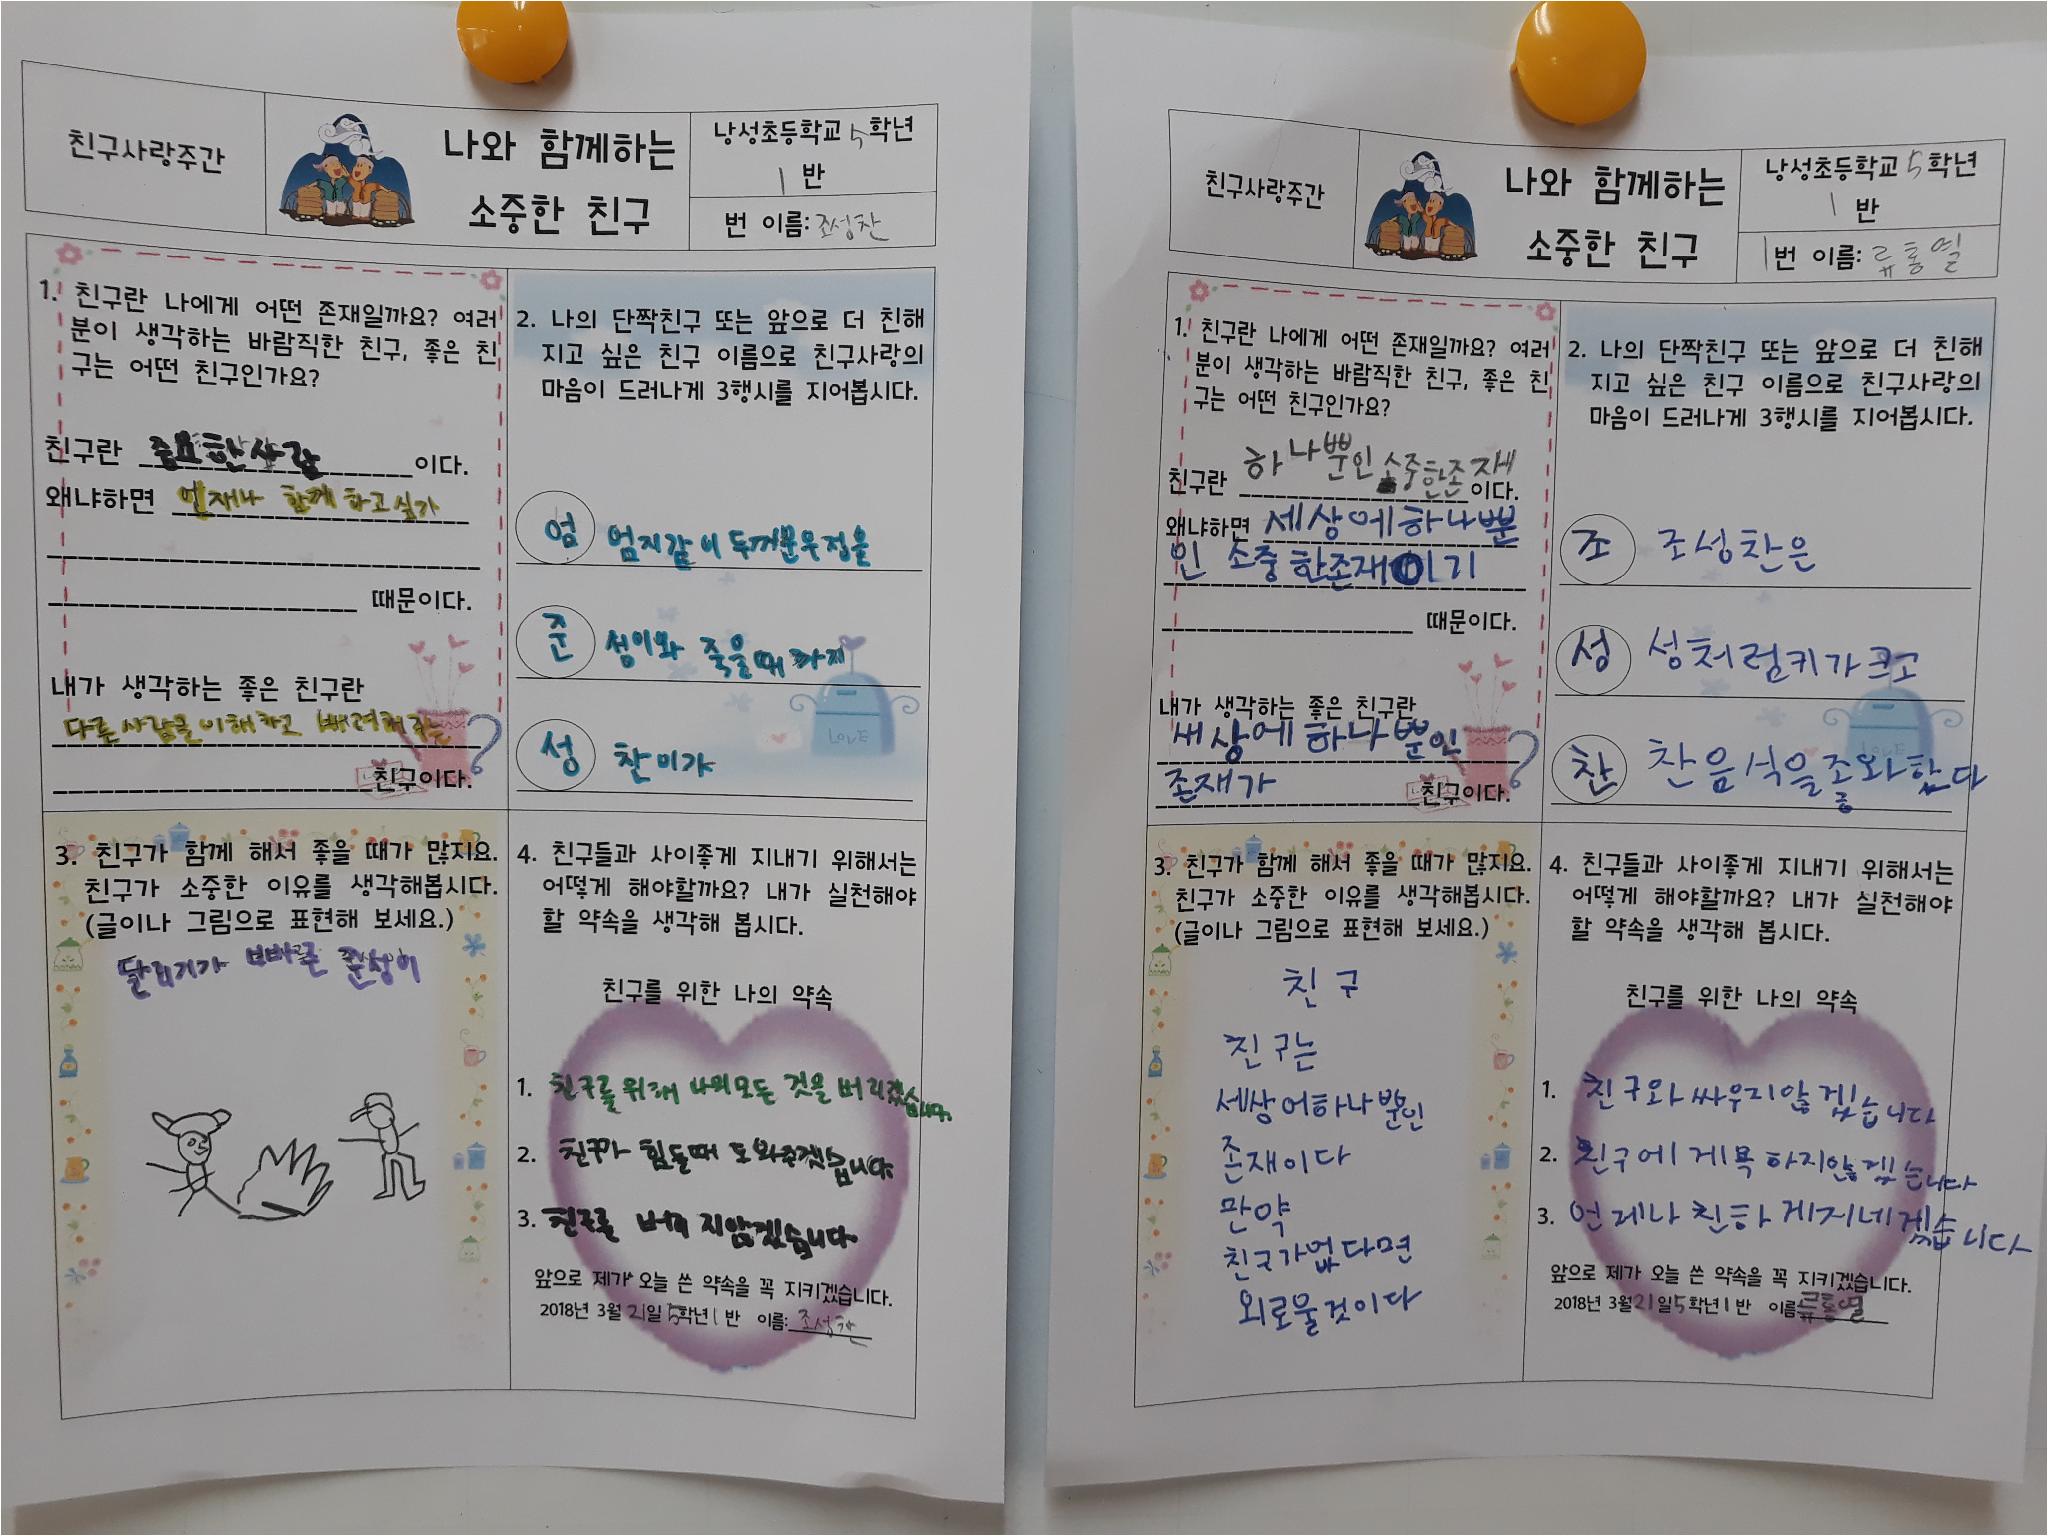 친구사랑주간
나와 함께하는
소중한 친구
낭성초등학교 5학년
1 반
번 이름: 조성찬
1. 친구란 나에게 어떤 존재일까요? 여러
분이 생각하는 바람직한 친구, 좋은 친
구는 어떤 친구인가요?
친구란 중요한사람 이다.
왜냐하면 언재나 함께 하고싶기
때문이다.
내가 생각하는 좋은 친구란
다른사람을이해하고 배려해주는
친구이다.
2. 나의 단짝친구 또는 앞으로 더 친해
지고 싶은 친구 이름으로 친구사랑의
마음이 드러나게 3행시를 지어봅시다.
엄 엄지같이 두꺼운우정을
준 성이와 죽을때 까지
성 찬이가
3. 친구가 함께 해서 좋을 때가 많지요.
친구가 소중한 이유를 생각해봅시다.
(글이나 그림으로 표현해 보세요.)
달리기가 빠른 준성이
4. 친구들과 사이좋게 지내기 위해서는
어떻게 해야할까요? 내가 실천해야
할 약속을 생각해 봅시다.
친구를 위한 나의 약속
1. 친구를위해 나의모든 것을 버리겠습니다.
2. 친구가 힘들때 도와주겠습니다.
3. 친구를 버리지않겠습니다.
앞으로 제가 오늘 쓴 약속을 꼭 지키겠습니다.
2018년 3월 21일 5학년 1 반 이름: 조성찬
친구사랑주간
나와 함께하는
소중한 친구
낭성초등학교 5학년
1 반
1번 이름: 류홍열
1. 친구란 나에게 어떤 존재일까요? 여러
분이 생각하는 바람직한 친구, 좋은 친
구는 어떤 친구인가요?
친구란 하나뿐인소중한존재 이다.
왜냐하면 세상에하나뿐
인 소중한존재이기
때문이다.
내가 생각하는 좋은 친구란
세상에하나뿐인
존재가
친구이다.
2. 나의 단짝친구 또는 앞으로 더 친해
지고 싶은 친구 이름으로 친구사랑의
마음이 드러나게 3행시를 지어봅시다.
조 조성찬은
성 성처럼키가크고
찬 찬음식을종와한다
3. 친구가 함께 해서 좋을 때가 많지요.
친구가 소중한 이유를 생각해봅시다.
(글이나 그림으로 표현해 보세요.)
친구
친구는
세상어하나뿐인
존재이다
만약
친구가없다면
외로울것이다
4. 친구들과 사이좋게 지내기 위해서는
어떻게 해야할까요? 내가 실천해야
할 약속을 생각해 봅시다.
친구를 위한 나의 약속
1. 친구와싸우지않겠습니다
2. 친구에게욕하지않겠습니다
3. 언제나친하게지네겠습니다
앞으로 제가 오늘 쓴 약속을 꼭 지키겠습니다.
2018년 3월21일5학년1반 이름류홍열